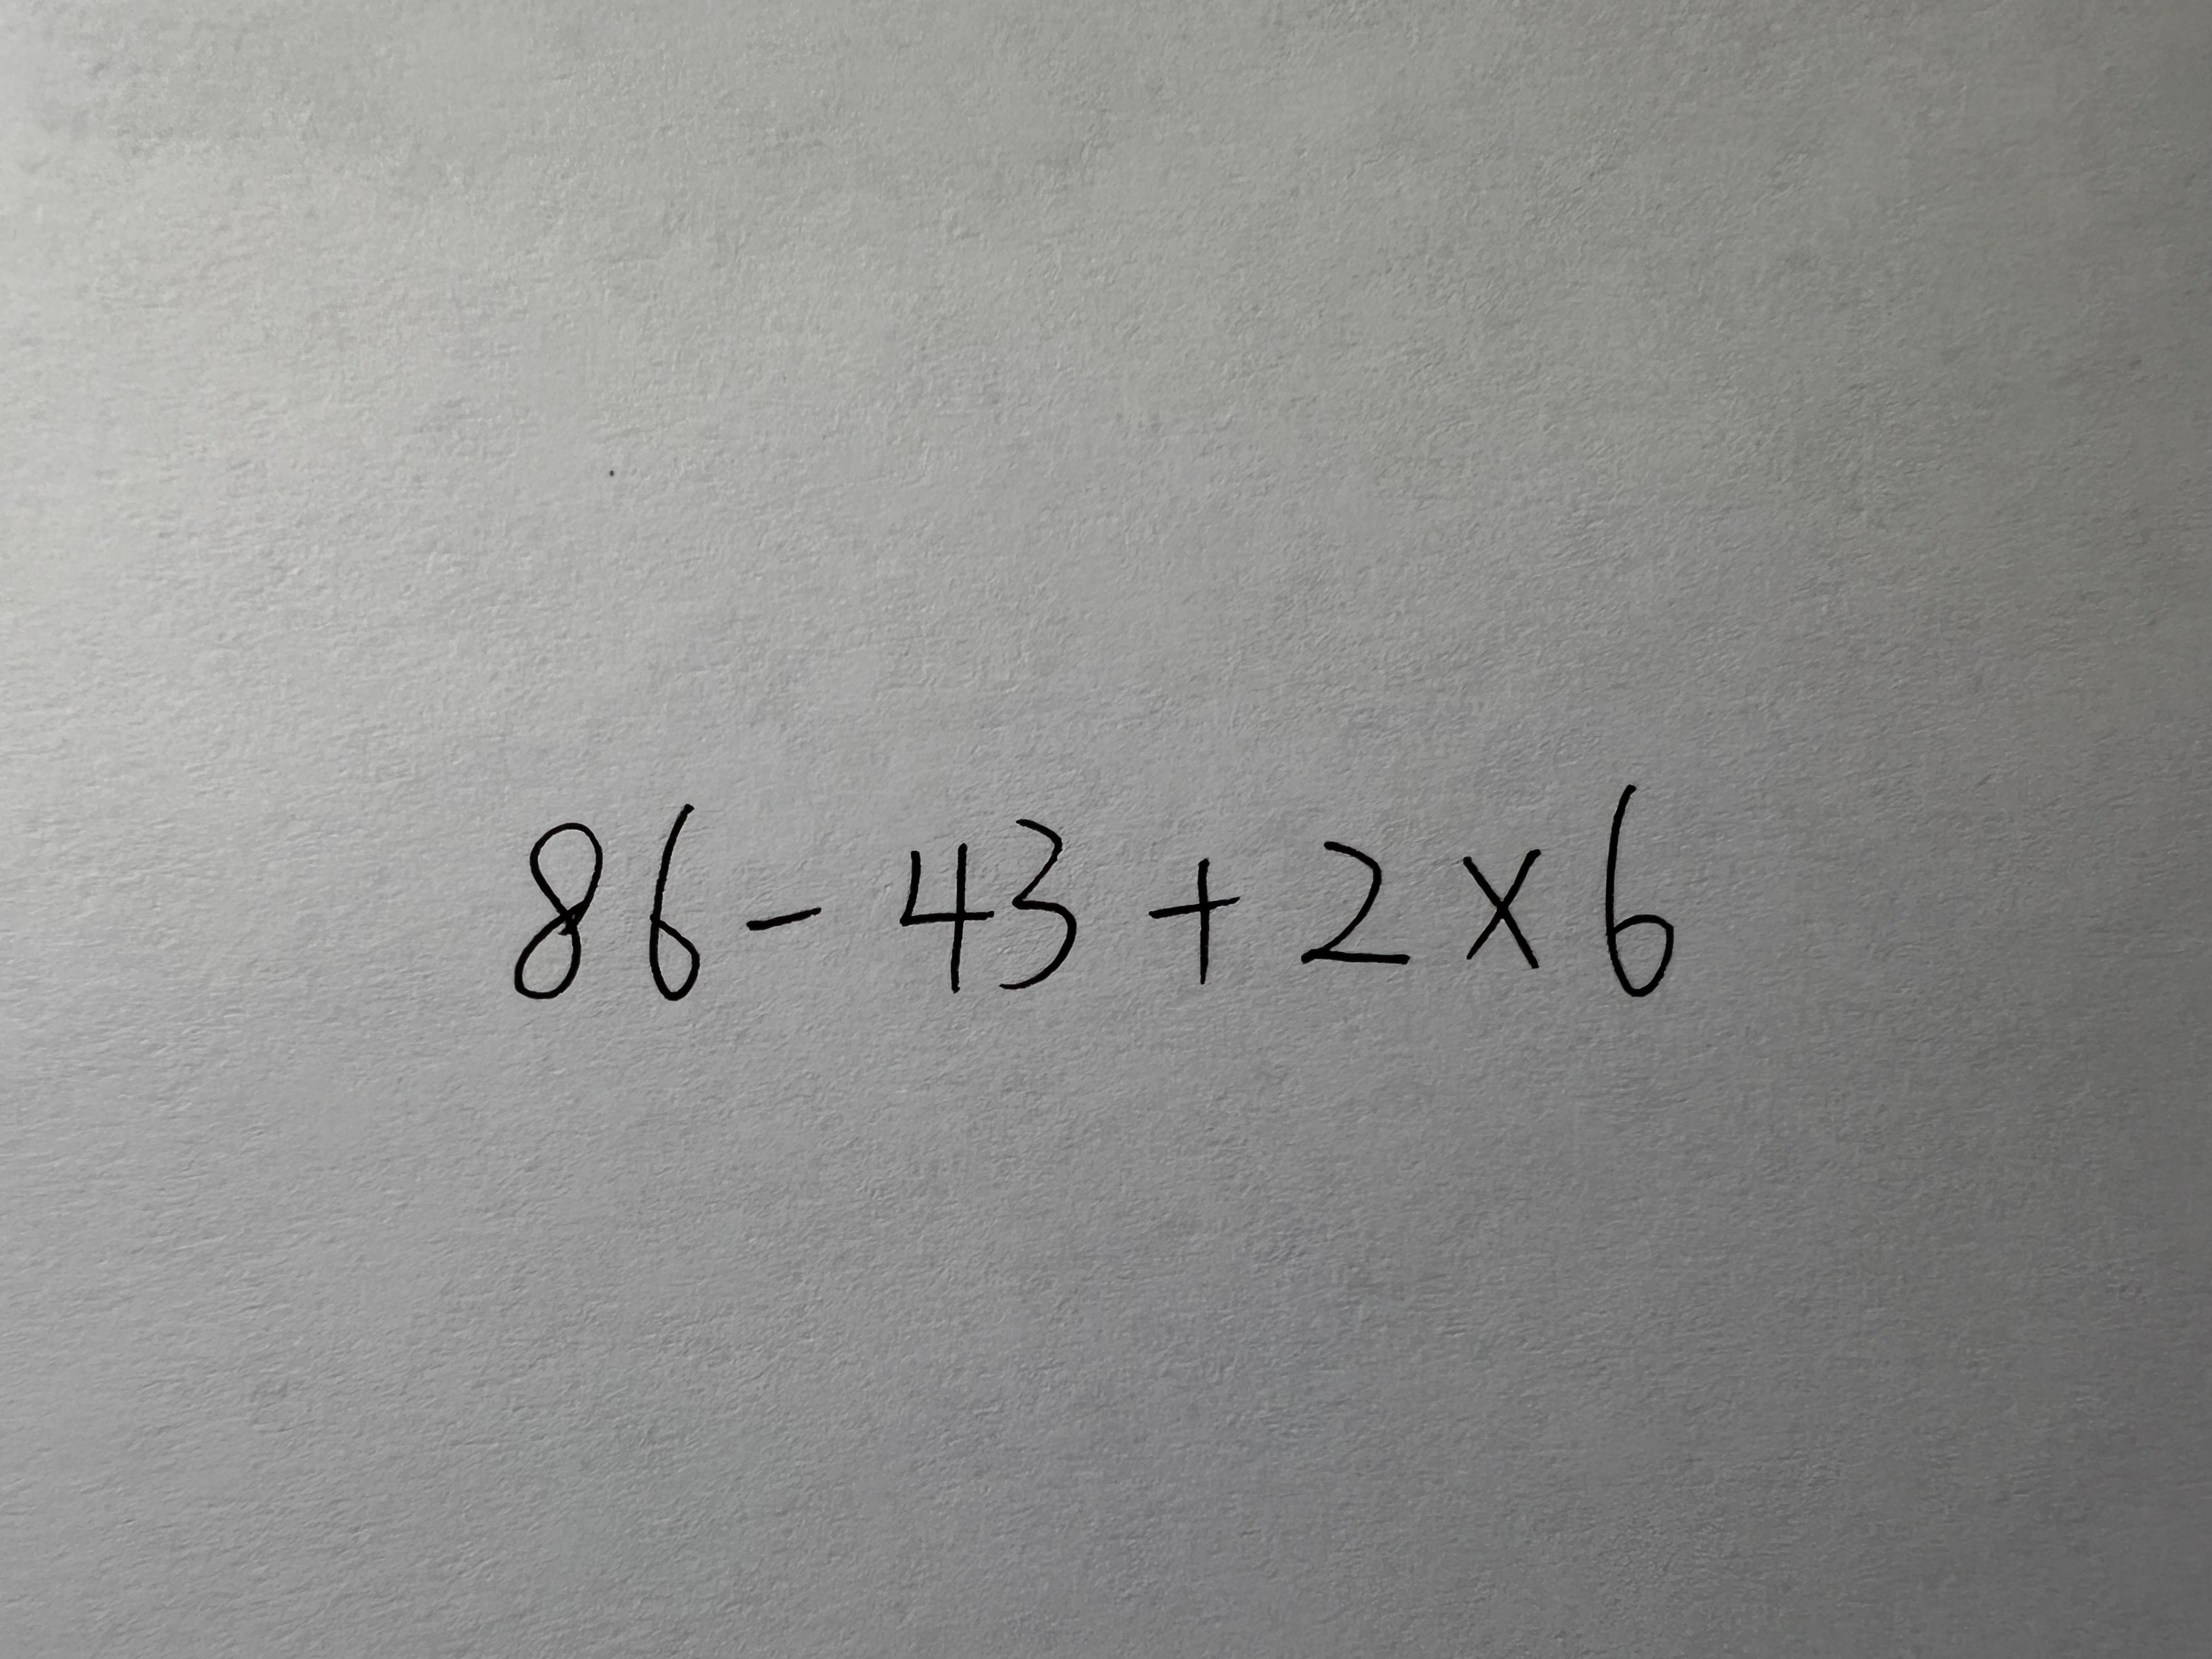 86 - 43 + 2 × 6